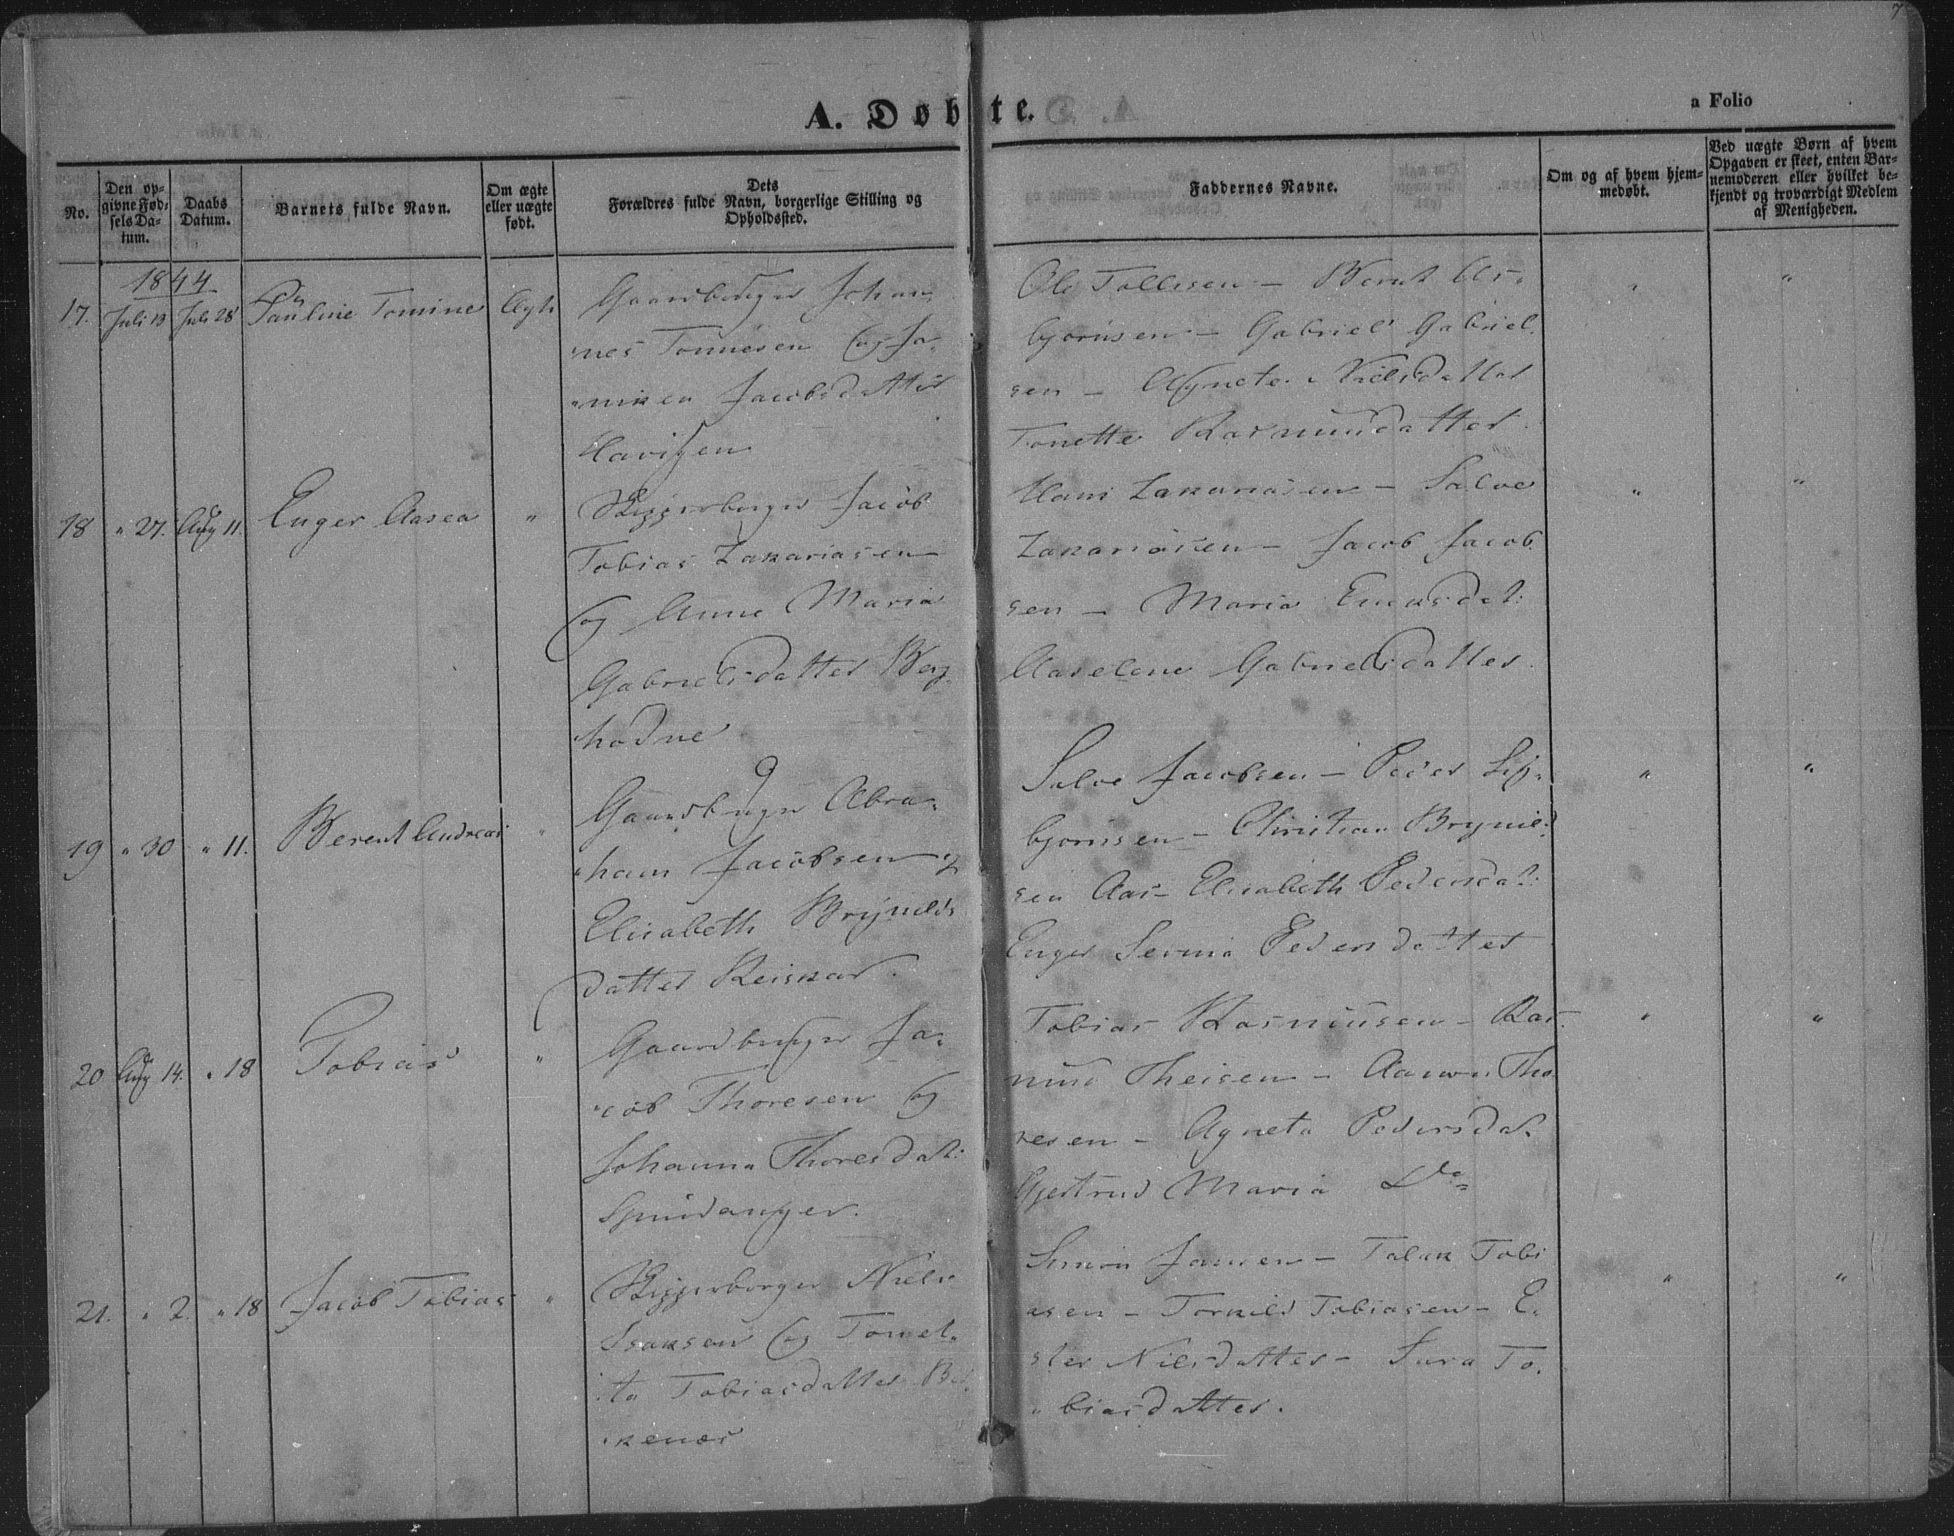 7
A. Døbte.
a Folio
No.
Den opgivne Fødsels Datum.
Daabs Datum.
Barnets fulde Navn.
Om ægte eller uægte født.
Dets Forældres fulde Navn, borgerlige Stilling og Opholdssted.
Faddernes Navne.
Om og af hvem hjemmedøbt.
Ved uægte Børn af hvem Opgaven er skeet, enten Barnemoderen eller hvilket bekjendt og troværdigt Medlem af Menigheden.
1844
17. Juli 19 Juli 28 Pauline Tomine Ægte
Gaardbruger Johan-
nes Tønnesen og Ja-
miken Jacobsdatter
Ole Tollesen - Bernt As-
bjørnsen - Gabriel Gabriel
sen - Agnete Nielsdatter
Tonette Rasmusdatter.
18 " 27. Aug 11. Enger Aasea "
Skipperborger Jacob
Tobias Zakariasen
og Anne Maria
Gabrielsdatter Berg
hodne
Hans Zakariasen - Salve
Zakariasen - Jacob Jacob
sen - Maria
Aaselene Gabrielsdatter.
19 " 30 " 11. Berent Andreas "
Gaardbruger Abra-
ham Jacobsen og
Elisabeth Brynilds
datter Reiskar.
Salve Jacobsen - Peder Sig-
bjørnsen - Christian Brynild
sen Aas - Elisabeth Pedersdat:
Enger Serina Pedersdatter
20 Aug 14. " 18 Tobias "
Gaardbruger Ja-
cob Thoresen og
Johanna Thoresdat:
Spindanger.
Tobias Rasmusen - Ras-
mus Theisen - Aanon Tho
resen - Agneta Pedersdat.
Gjertrud Maria Do
21. " 2. " 18 Jacob Tobias "
Skipperborger Niels
Isaksen og Tomel-
ta Tobiasdatter
Simon Jansen - Talak Tobi
asen - Torkild Tobiasen - E-
ster Nilsdatter - Sara To-
biasdatter.